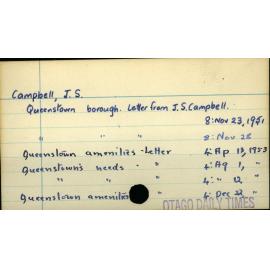 Campbell, J. S.
Queenstown borough. Letter from J.S. Campbell.
8: Nov 23, 1951
" " 8: Nov 28
Queenstown amenities - Letter 4: Ap 13, 1953
Queenstown's needs - " 4: Ag 1, "
" " " 4: " 12 "
Queenstown amenities " 4: Dec 23 "
OTAGO DAILY TIMES